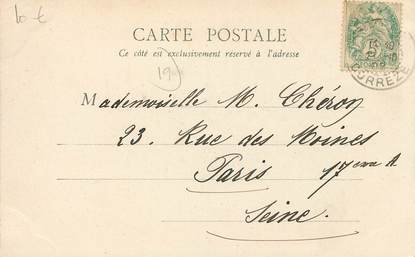 10 €
CARTE POSTALE
Ce côté est exclusivement réservé à l'adresse
19
Mademoiselle M. Chéron
23. Rue des Moines
Paris 17eme A
Seine.
CORRÈZE